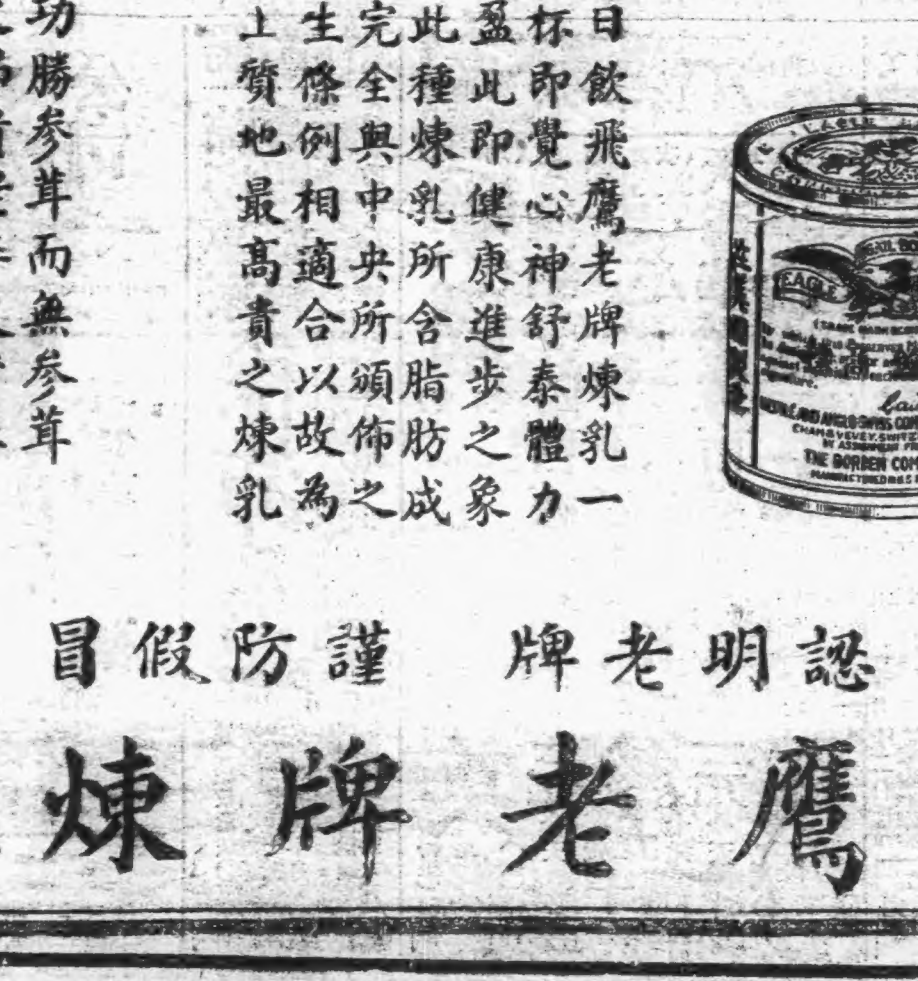 日飲飛鷹老牌煉乳一
杯即覺心神舒泰體力
盈此即健康進步之象
此種煉乳所含脂肪成
完全與中央所頒佈之
生條例相適合以故為
上質地最高貴之煉乳
功勝参茸而無参茸
EAGLE
THE BORDEN COM
認明老牌 謹防假冒
鷹老牌煉